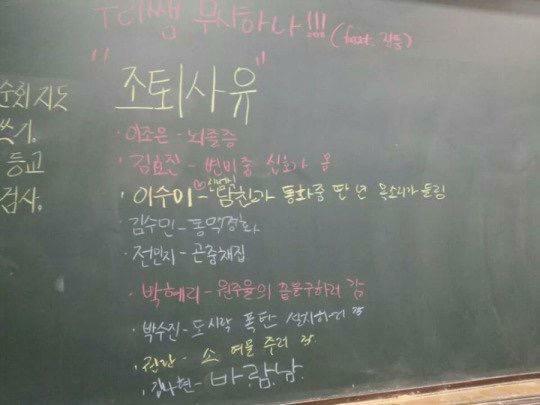 쌤 무사하나!!! (feat. 작품)
"조퇴사유"
순회지도
쓰기.
등교
검사.
·이조은-뇌졸증
·김효진-변비중 신호가 옴
·이수미-남친과 통화중 딴 년 목소리가 들림
·김수민-동맥경화
·전민지-곤충채집
·박혜리-원주율의 끝을 구하러 감
·박수진-도시락 폭탄 설치하러 감
소 여물 주러 감
바람.남.